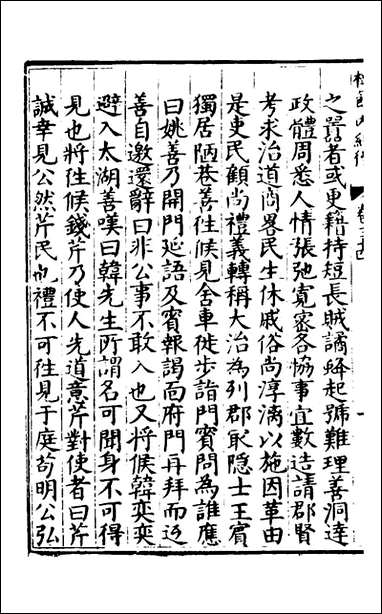 之嚚者或更籍持短長賊譎蜂起號難理善洞達
政體周悉人情張弛寬密各協事宜數造請郡賢
考求治道商畧民生休戚俗尚淳漓以施因革由
是吏民顧尚禮義轉稱大治為列郡最隱士王賓
獨居陋巷善徃候見舍車徒步詣門賓問為誰應
曰姚善乃開門延語及賓報謁靣府門再拜而返
善自邀還辭曰非公事不敢入也又將候韓奕奕
避入太湖善嘆曰韓先生所謂名可聞身不可得
見也將徃候錢芹乃使人先道意芹對使者曰芹
誠幸見公然芹民也禮不可徃見于庭茍明公弘